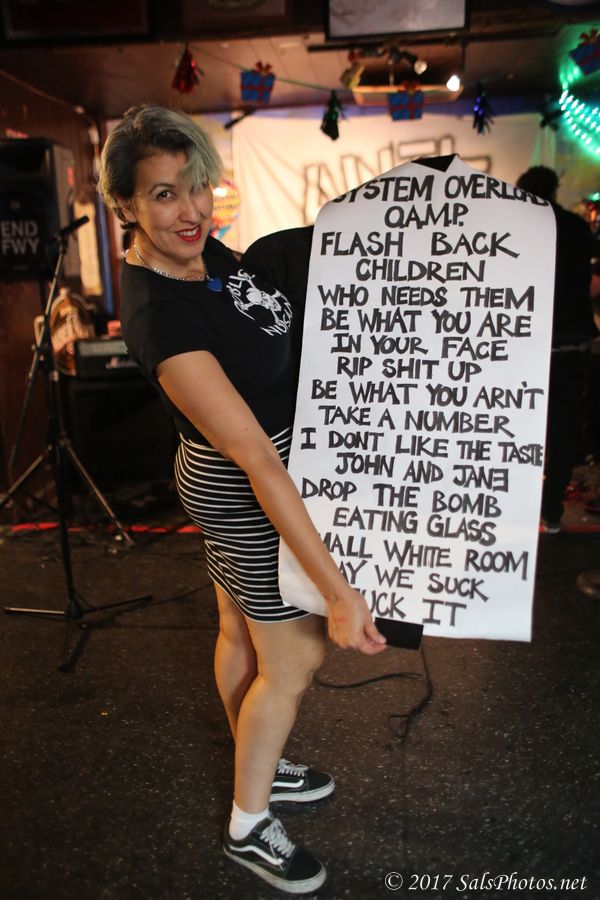 END
FWY
ANTI-
PUBLIC
SYSTEM OVERLOAD
Q.A.M.P.
FLASH BACK
CHILDREN
WHO NEEDS THEM
BE WHAT YOU ARE
IN YOUR FACE
RIP SHIT UP
BE WHAT YOU ARN'T
TAKE A NUMBER
I DONT LIKE THE TASTE
JOHN AND JANE
DROP THE BOMB
EATING GLASS
MALL WHITE ROOM
AY WE SUCK
UCK IT
© 2017 SalsPhotos.net